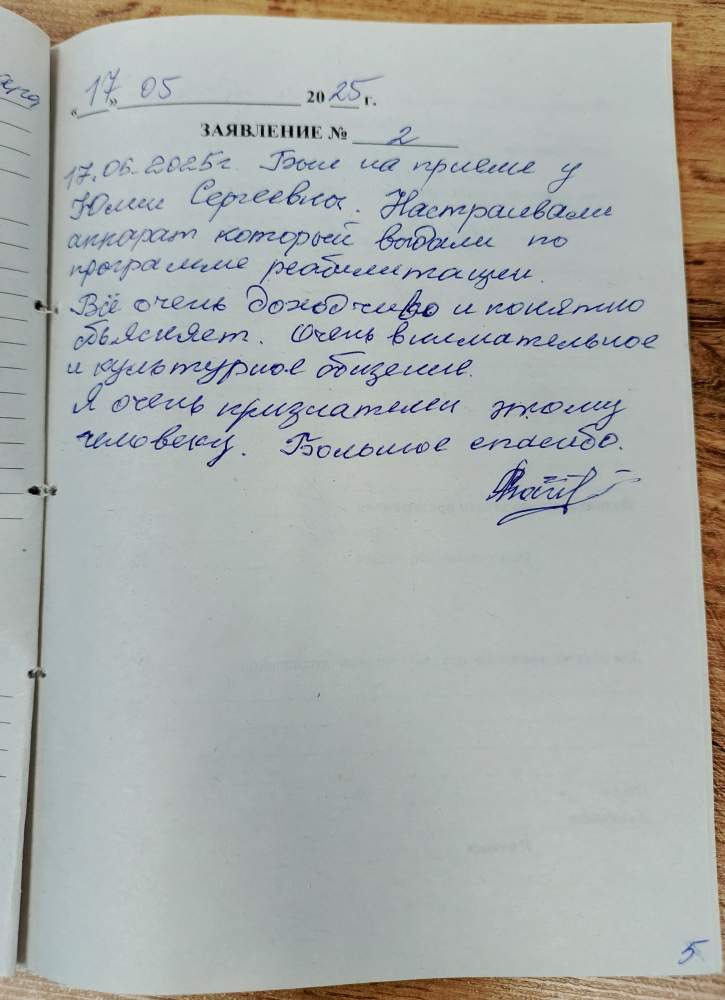 «17» 05 2025 г.
ЗАЯВЛЕНИЕ № 2
17.06.2025г. Был на приеме у
Юлии Сергеевны. Настраивали
аппарат который выдали по
программе реабилитации.
Всё очень доходчиво и понятно
объясняет. Очень внимательное
и культурное общение.
Я очень признателен этому
человеку. Большое спасибо.
5